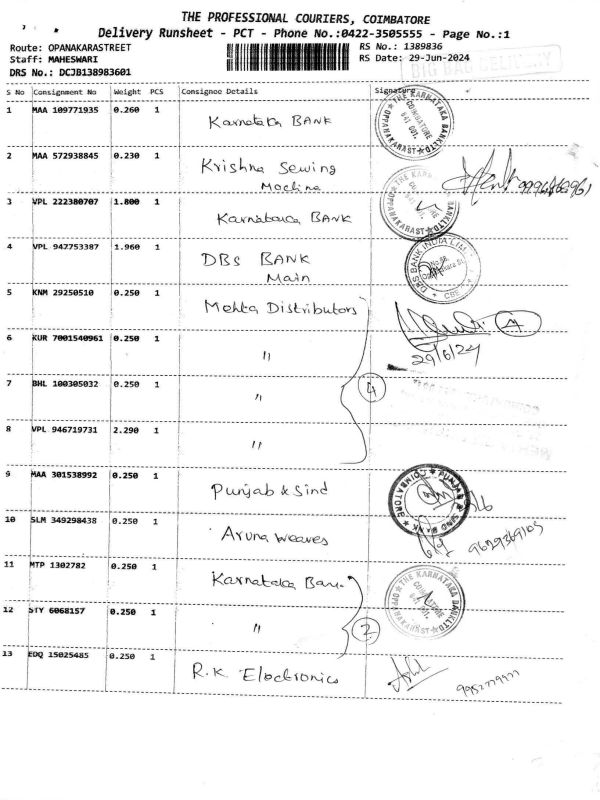 THE PROFESSIONAL COURIERS, COIMBATORE
Delivery Runsheet - PCT - Phone No.:0422-3505555 - Page No.:1
Route: OPANAKARASTREET RS No.: 1389836
Staff: MAHESWARI RS Date: 29-Jun-2024
BIG BAG DELIVERY
DRS No.: DCJB138983601
S No Consignment No Weight PCS Consignee Details Signature
1 MAA 109771935 0.260 1 Karnataka BANK
THE KARNATAKA BANK LTD
COIMBATORE
641 001.
OPPANAKARAST
2 MAA 572938845 0.230 1 Krishna Sewing
Machine
3 VPL 222380707 1.800 1 Karnataka BANK
4 VPL 947753387 1.960 1 DBS BANK
Main
DBS BANK INDIA LIM
CBE
5 KNM 29250510 0.250 1 Mehta Distributors
4
29/6/24
6 KUR 7001540961 0.250 1 "
7 BHL 100305032 0.250 1 "
4
8 VPL 946719731 2.290 1 "
9 MAA 301538992 0.250 1 Punjab & Sind
PUNJAB & SIND BANK
COIMBATORE
10 SLM 349298438 0.250 1 Aruna weaves
11 MTP 1302782 0.250 1 Karnataka Bank
THE KARNATAKA BANK LTD
COIMBATORE
641 001.
OPPANAKARAST
12 STY 6068157 0.250 1 "
2
13 EDQ 15025485 0.250 1 R.K Electronics